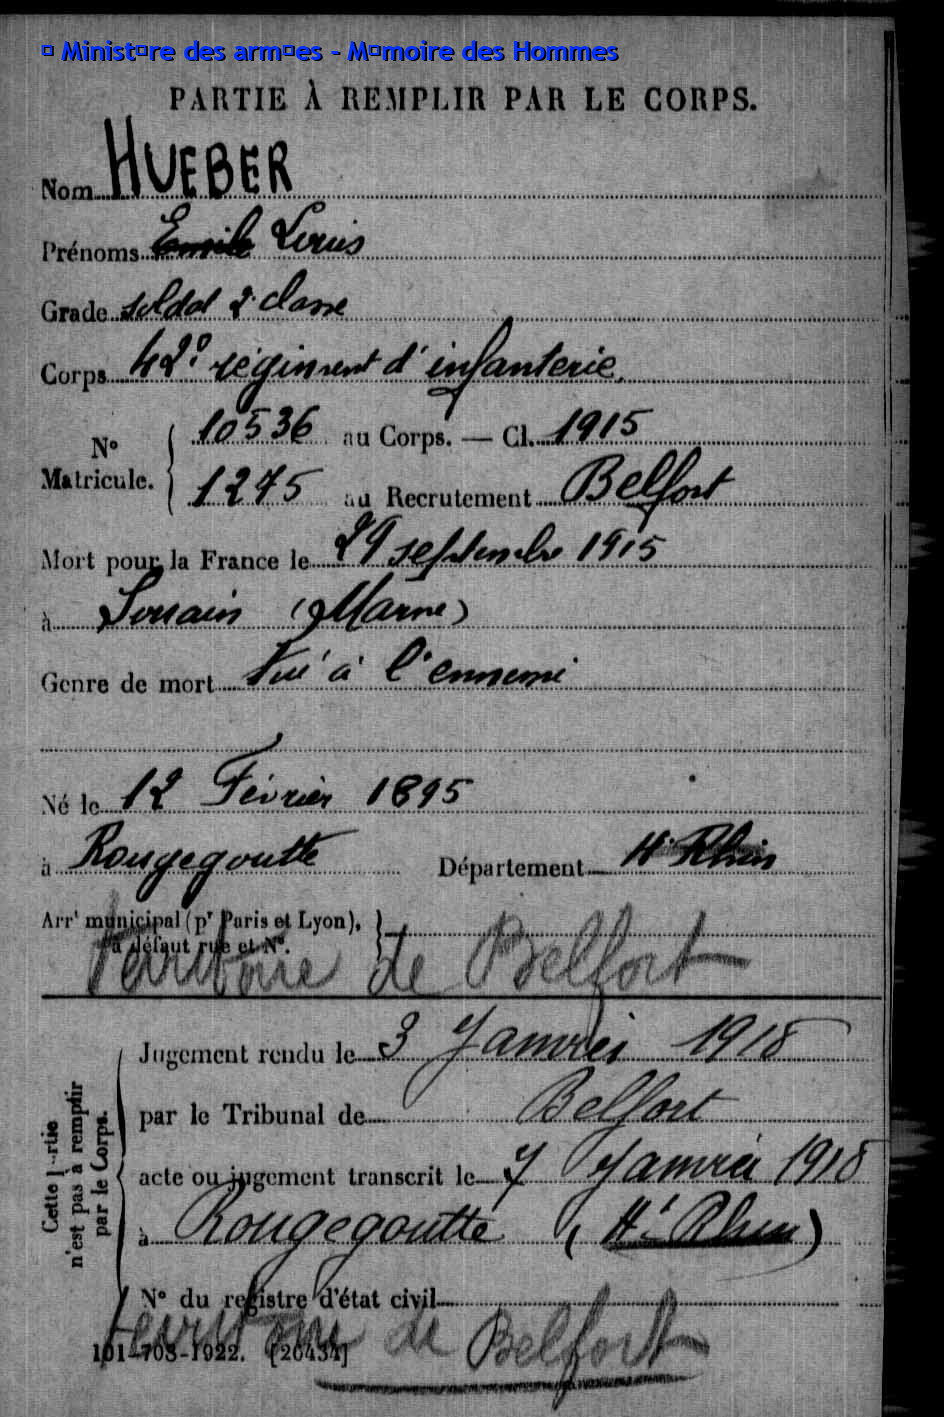 © Ministère des armées - Mémoire des Hommes
PARTIE À REMPLIR PAR LE CORPS.
Nom HUEBER
Prénoms Emile Louis
Grade soldat 2e classe
Corps 42e régiment d'infanterie.
N° Matricule. 10536 au Corps. — Cl. 1915
1275 au Recrutement Belfort
Mort pour la France le 29 septembre 1915
à Souain (Marne)
Genre de mort Tué à l'ennemi
Né le 12 Février 1895
à Rougegoutte Département Ht Rhin
Arrt municipal (pr Paris et Lyon),
à défaut rue et N°.
Territoire de Belfort
Cette partie n'est pas à remplir par le Corps.
Jugement rendu le 3 Janvier 1918
par le Tribunal de Belfort
acte ou jugement transcrit le 7 Janvier 1918
à Rougegoutte (Ht Rhin)
N° du registre d'état civil
territoire de Belfort
101-708-1922. [26434]